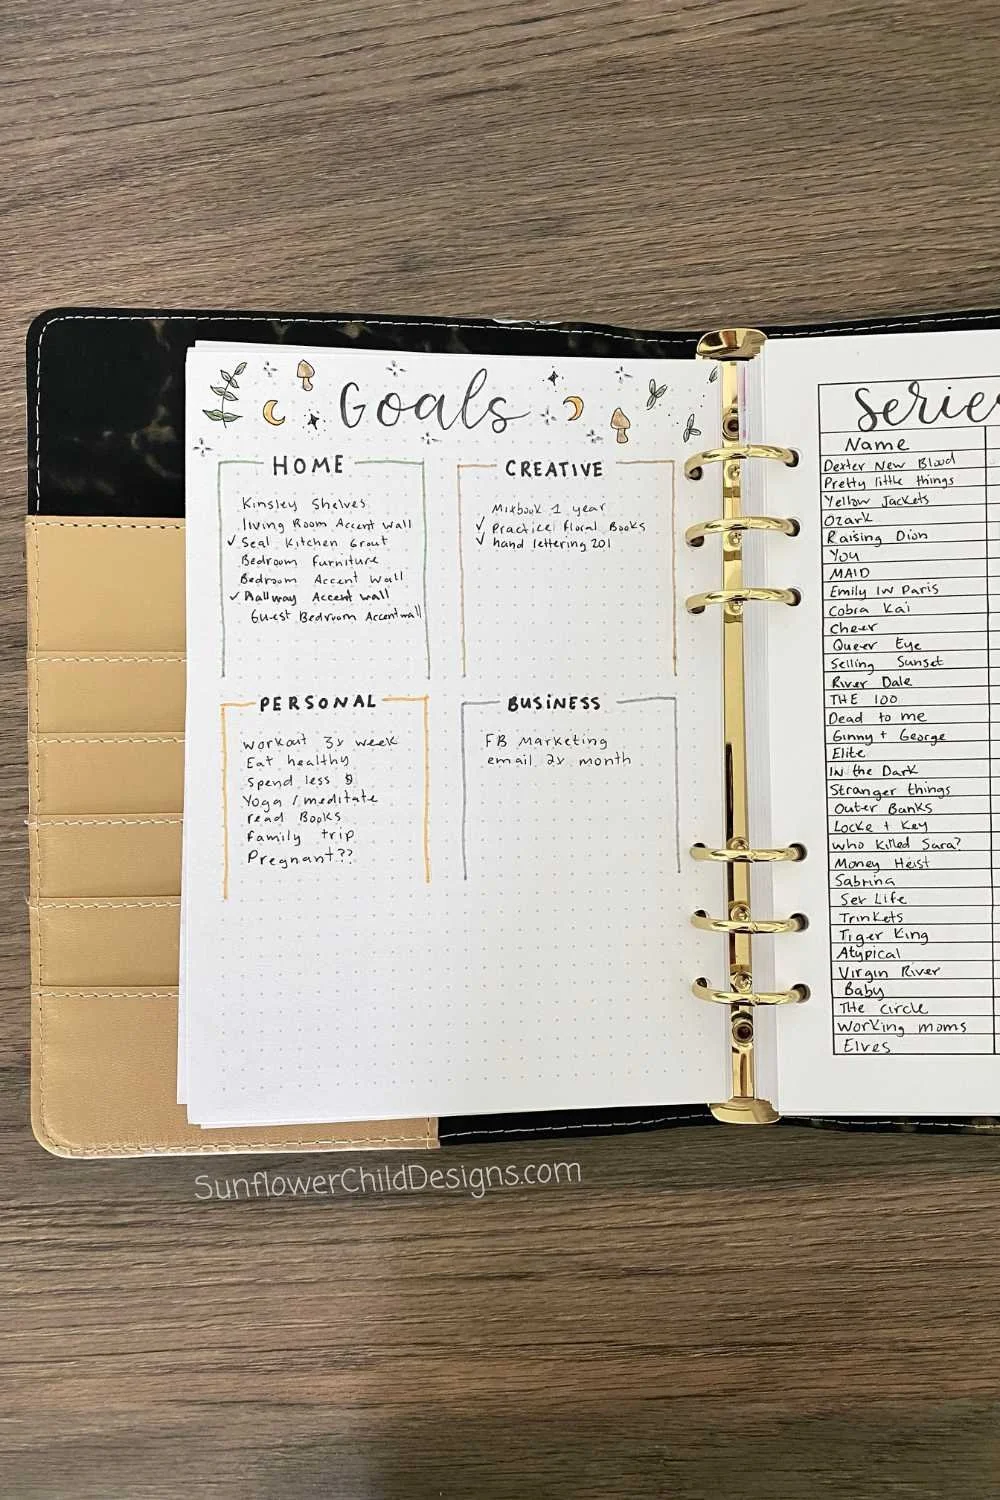 Goals
HOME
Kinsley Shelves
living Room Accent wall
✓ Seal Kitchen Grout
Bedroom Furniture
Bedroom Accent Wall
✓ Hallway Accent wall
Guest Bedroom Accent wall
CREATIVE
Mixbook 1 year
✓ Practice Floral Books
✓ hand lettering 201
PERSONAL
workout 3x week
Eat healthy
Spend less $
Yoga / meditate
read Books
family trip
Pregnant??
BUSINESS
FB Marketing
email 2x month
Series
Name
Dexter New Blood
Pretty little things
Yellow Jackets
Ozark
Raising Dion
You
MAID
Emily IN Paris
Cobra Kai
Cheer
Queer Eye
Selling Sunset
River Dale
THE 100
Dead to me
Ginny + George
Elite
IN the Dark
Stranger things
Outer Banks
Locke + Key
who killed Sara?
Money Heist
Sabrina
Sex Life
Trinkets
Tiger King
Atypical
Virgin River
Baby
THe circle
Working moms
Elves
SunflowerChildDesigns.com